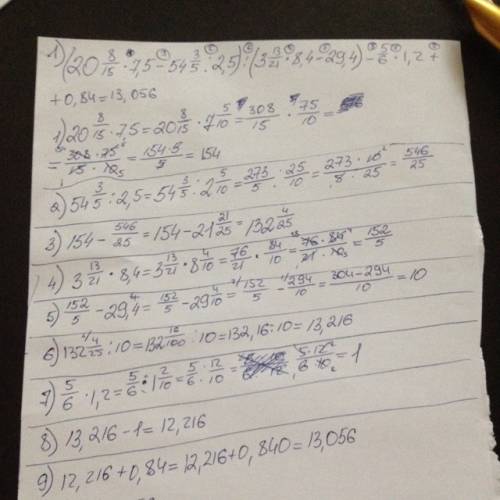 1) (20 8/15 · 7,5 − 54 3/5 : 2,5) : (3 13/21 · 8,4 − 29,4) − 5/6 · 1,2 +
+ 0,84 = 13,056
1) 20 8/15 · 7,5 = 20 8/15 · 7 5/10 = 308/15 · 75/10 =
= 308 · 75 / 15 · 10 = 154 · 5 / 5 = 154
2) 54 3/5 : 2,5 = 54 3/5 : 2 5/10 = 273/5 : 25/10 = 273 · 10 / 5 · 25 = 546/25
3) 154 − 546/25 = 154 − 21 21/25 = 132 4/25
4) 3 13/21 · 8,4 = 3 13/21 · 8 4/10 = 76/21 · 84/10 = 76 · 84 / 21 · 10 = 152/5
5) 152/5 − 29,4 = 152/5 − 29 4/10 = 152/5 − 294/10 = 304 − 294 / 10 = 10
6) 132 4/25 : 10 = 132 16/100 : 10 = 132,16 : 10 = 13,216
7) 5/6 · 1,2 = 5/6 · 1 2/10 = 5/6 · 12/10 = 5 · 12 / 6 · 10 = 1
8) 13,216 − 1 = 12,216
9) 12,216 + 0,84 = 12,216 + 0,840 = 13,056